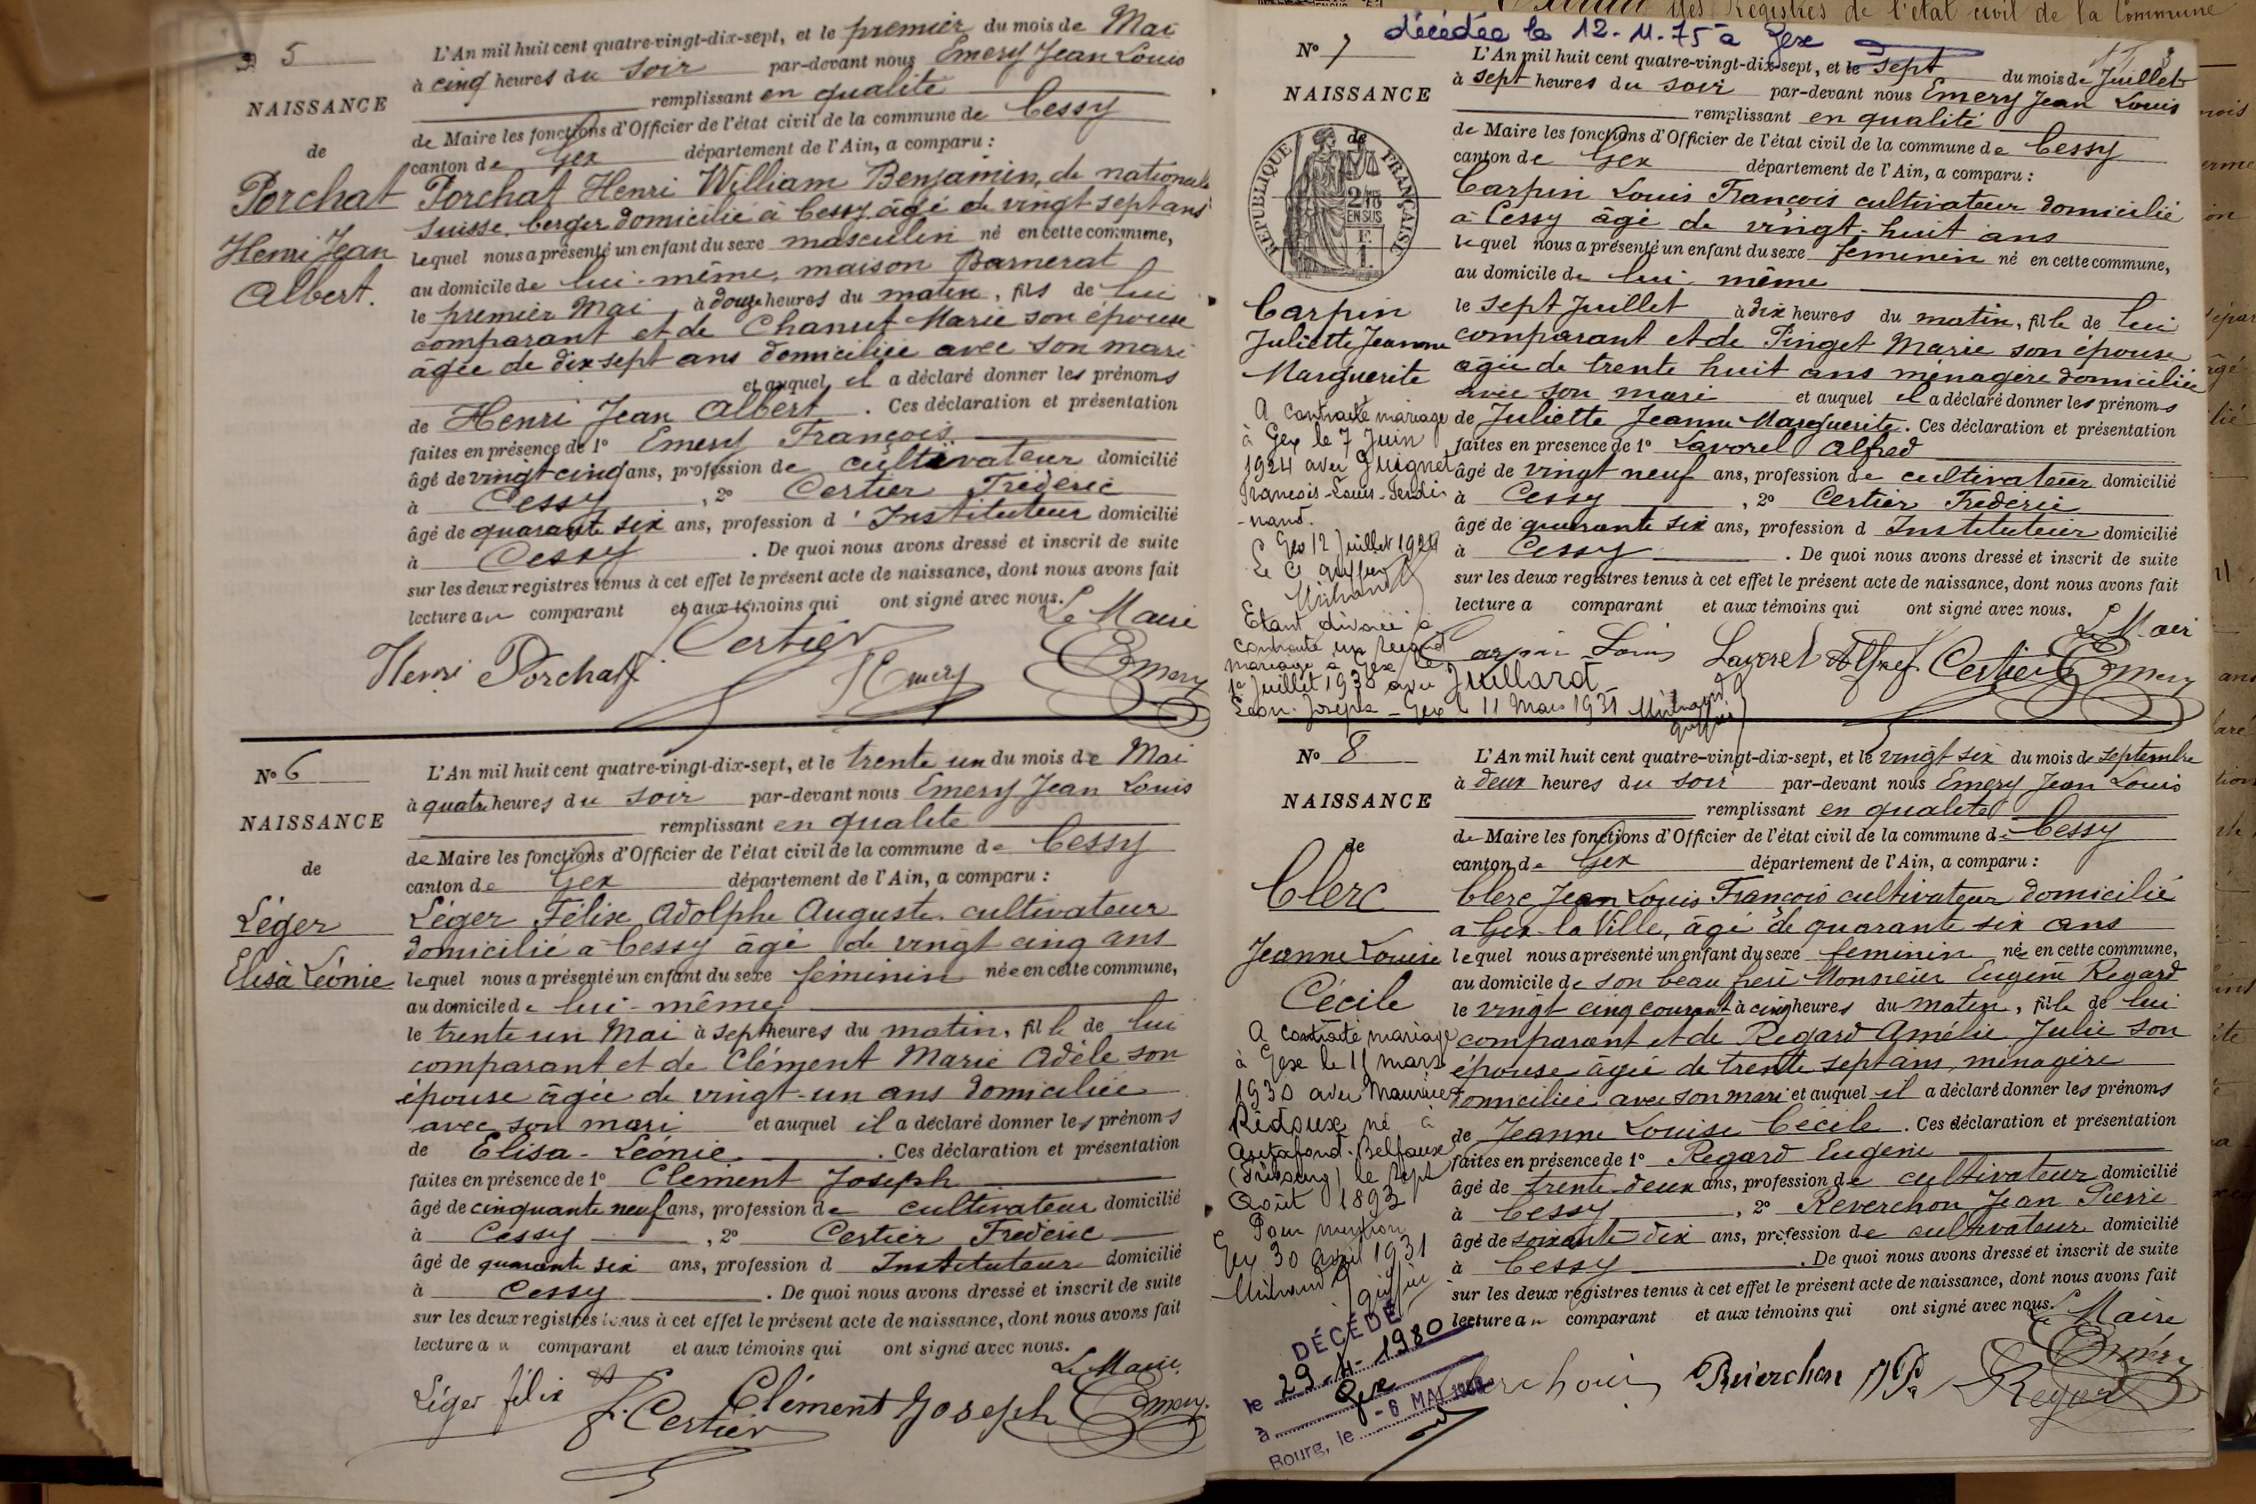 N° 5
NAISSANCE
de
Porchat
Henri Jean
Albert.
L'An mil huit cent quatre-vingt-dix-sept, et le premier du mois de Mai
à cinq heures du soir par-devant nous Emery Jean Louis
remplissant en qualité
de Maire les fonctions d'Officier de l'état civil de la commune de Cessy
canton de Gex département de l'Ain, a comparu :
Porchat Henri William Benjamin, de nationale
suisse, berger domicilié à Cessy âgé de vingt sept ans
lequel nous a présenté un enfant du sexe masculin né en cette commune,
au domicile de lui-même, maison Barnerat
le premier Mai à douze heures du matin, fils de lui
comparant et de Chanut Marie son épouse
âgée de dix sept ans domiciliée avec son mari
et auquel il a déclaré donner les prénoms
de Henri Jean Albert. Ces déclaration et présentation
faites en présence de 1° Emery François
âgé de vingt cinq ans, profession de cultivateur domicilié
à Cessy, 2° Certier Frédéric
âgé de quarante six ans, profession d'Instituteur domicilié
à Cessy. De quoi nous avons dressé et inscrit de suite
sur les deux registres tenus à cet effet le présent acte de naissance, dont nous avons fait
lecture au comparant et aux témoins qui ont signé avec nous.
Le Maire
Henri Porchat Certier F Emery Emery
N° 6
NAISSANCE
de
Léger
Elisa Léonie
L'An mil huit cent quatre-vingt-dix-sept, et le trente un du mois de Mai
à quatre heures du soir par-devant nous Emery Jean Louis
remplissant en qualité
de Maire les fonctions d'Officier de l'état civil de la commune de Cessy
canton de Gex département de l'Ain, a comparu :
Léger Félix Adolphe Auguste cultivateur
domicilié à Cessy âgé de vingt cinq ans
lequel nous a présenté un enfant du sexe féminin née en cette commune,
au domicile de lui-même
le trente un Mai à sept heures du matin, fille de lui
comparant et de Clément Marie Adèle son
épouse âgée de vingt-un ans domiciliée
avec son mari et auquel il a déclaré donner les prénoms
de Elisa-Léonie. Ces déclaration et présentation
faites en présence de 1° Clément Joseph
âgé de cinquante neuf ans, profession de cultivateur domicilié
à Cessy, 2° Certier Frédéric
âgé de quarante six ans, profession d Instituteur domicilié
à Cessy. De quoi nous avons dressé et inscrit de suite
sur les deux registres tenus à cet effet le présent acte de naissance, dont nous avons fait
lecture au comparant et aux témoins qui ont signé avec nous.
Le Maire
Léger félix F. Certier Clément Joseph Emery
décédée le 12-11-75 à Gex
N° 7
NAISSANCE
de
RÉPUBLIQUE FRANÇAISE
EN SUS
Carpin
Juliette Jeanne
Marguerite
A contracté mariage
à Gex le 7 Juin
1924 avec Guignet
François-Louis-Ferdi-
-nand.
Gex 12 Juillet 1924
Etant divorcée a
contracté un second
mariage à Gex le
1er Juillet 1930 avec Juillard
Léon-Joseph - Gex le 11 Mars 1931
L'An mil huit cent quatre-vingt-dix-sept, et le sept du mois de Juillet
à sept heures du soir par-devant nous Emery Jean Louis
remplissant en qualité
de Maire les fonctions d'Officier de l'état civil de la commune de Cessy
canton de Gex département de l'Ain, a comparu :
Carpin Louis François cultivateur domicilié
à Cessy âgé de vingt-huit ans
lequel nous a présenté un enfant du sexe féminin né en cette commune,
au domicile de lui-même
le sept Juillet à dix heures du matin, fille de lui
comparant et de Pinget Marie son épouse
âgée de trente huit ans ménagère domiciliée
avec son mari et auquel il a déclaré donner les prénoms
de Juliette Jeanne Marguerite. Ces déclaration et présentation
faites en présence de 1° Lavorel Alfred
âgé de vingt neuf ans, profession de cultivateur domicilié
à Cessy, 2° Certier Frédéric
âgé de quarante six ans, profession d Instituteur domicilié
à Cessy. De quoi nous avons dressé et inscrit de suite
sur les deux registres tenus à cet effet le présent acte de naissance, dont nous avons fait
lecture a comparant et aux témoins qui ont signé avec nous.
Le Maire
Carpin Louis Lavorel Alfred Certier Emery
N° 8
NAISSANCE
de
Clerc
Jeanne Louise
Cécile
A contracté mariage
à Gex le 11 mars
1930 avec Maurice
Ridoux né à
Belfaux
(Fribourg) le sept
Août 1893
Pour mention
Gex 30 avril 1931
DÉCÉDÉ
le 29-4-1980
à Gex
Bourg, le -6 MAI 1980
L'An mil huit cent quatre-vingt-dix-sept, et le vingt six du mois de septembre
à deux heures du soir par-devant nous Emery Jean Louis
remplissant en qualité
de Maire les fonctions d'Officier de l'état civil de la commune de Cessy
canton de Gex département de l'Ain, a comparu :
Clerc Jean Louis François cultivateur domicilié
à Gex-la-Ville, âgé de quarante six ans
lequel nous a présenté un enfant du sexe féminin née en cette commune,
au domicile de son beau frère Monsieur Eugène Regard
le vingt cinq courant à cinq heures du matin, fille de lui
comparant et de Regard Amélie Julie son
épouse âgée de trente sept ans, ménagère
domiciliée avec son mari et auquel il a déclaré donner les prénoms
de Jeanne Louise Cécile. Ces déclaration et présentation
faites en présence de 1° Regard Eugène
âgé de trente deux ans, profession de cultivateur domicilié
à Cessy, 2° Reverchon Jean Pierre
âgé de soixante dix ans, profession de cultivateur domicilié
à Cessy. De quoi nous avons dressé et inscrit de suite
sur les deux registres tenus à cet effet le présent acte de naissance, dont nous avons fait
lecture au comparant et aux témoins qui ont signé avec nous.
Le Maire
Reverchon Regard Emery